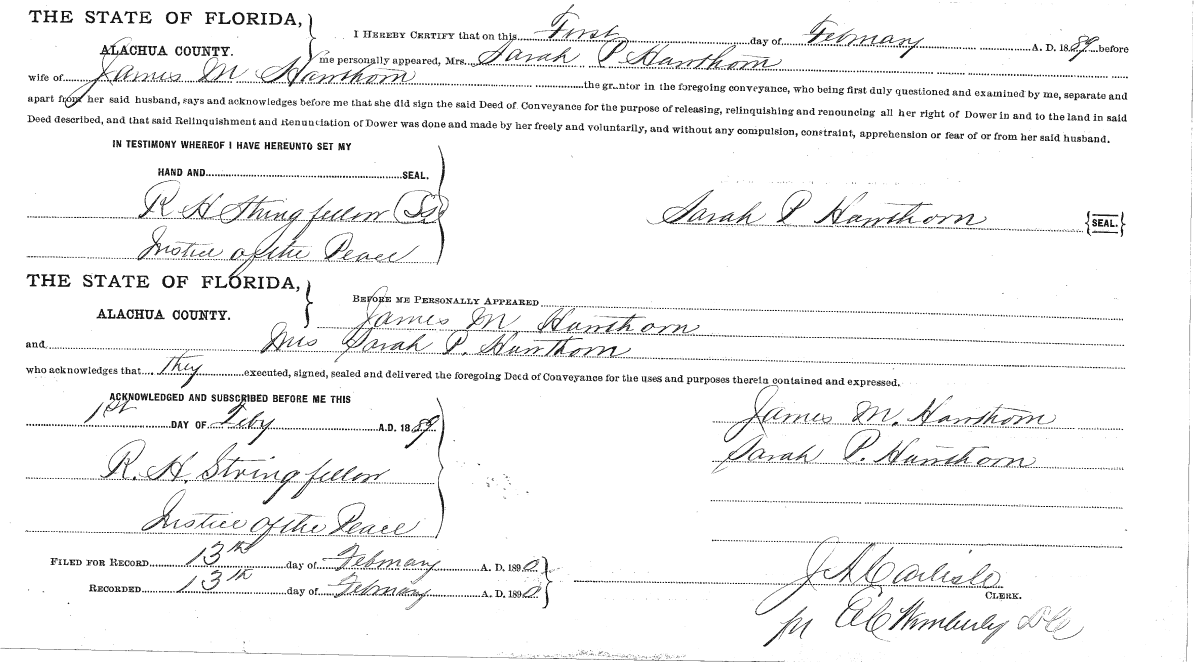 THE STATE OF FLORIDA,
ALACHUA COUNTY.
I HEREBY CERTIFY that on this First day of February A. D. 1889 before
me personally appeared, Mrs. Sarah P Hawthorn
wife of James M Hawthorn the gr..ntor in the foregoing conveyance, who being first duly questioned and examined by me, separate and
apart from her said husband, says and acknowledges before me that she did sign the said Deed of Conveyance for the purpose of releasing, relinquishing and renouncing all her right of Dower in and to the land in said
Deed described, and that said Relinquishment and Renunciation of Dower was done and made by her freely and voluntarily, and without any compulsion, constraint, apprehension or fear of or from her said husband.
IN TESTIMONY WHEREOF I HAVE HEREUNTO SET MY
HAND AND SEAL.
R H Stringfellow
Sarah P Hawthorn {SEAL.}
Justice of the Peace
THE STATE OF FLORIDA,
ALACHUA COUNTY.
BEFORE ME PERSONALLY APPEARED
James M Hawthorn
and Mrs Sarah P. Hawthorn
who acknowledges that they executed, signed, sealed and delivered the foregoing Deed of Conveyance for the uses and purposes therein contained and expressed.
ACKNOWLEDGED AND SUBSCRIBED BEFORE ME THIS
1st DAY OF Feby A.D. 1889
James M. Hawthorn
Sarah P. Hawthorn
R. H. Stringfellow
Justice of the Peace
FILED FOR RECORD 13th day of February A. D. 1890
RECORDED 13th day of February A. D. 1890
J A Carlisle
CLERK.
pr E C Wimberly D C